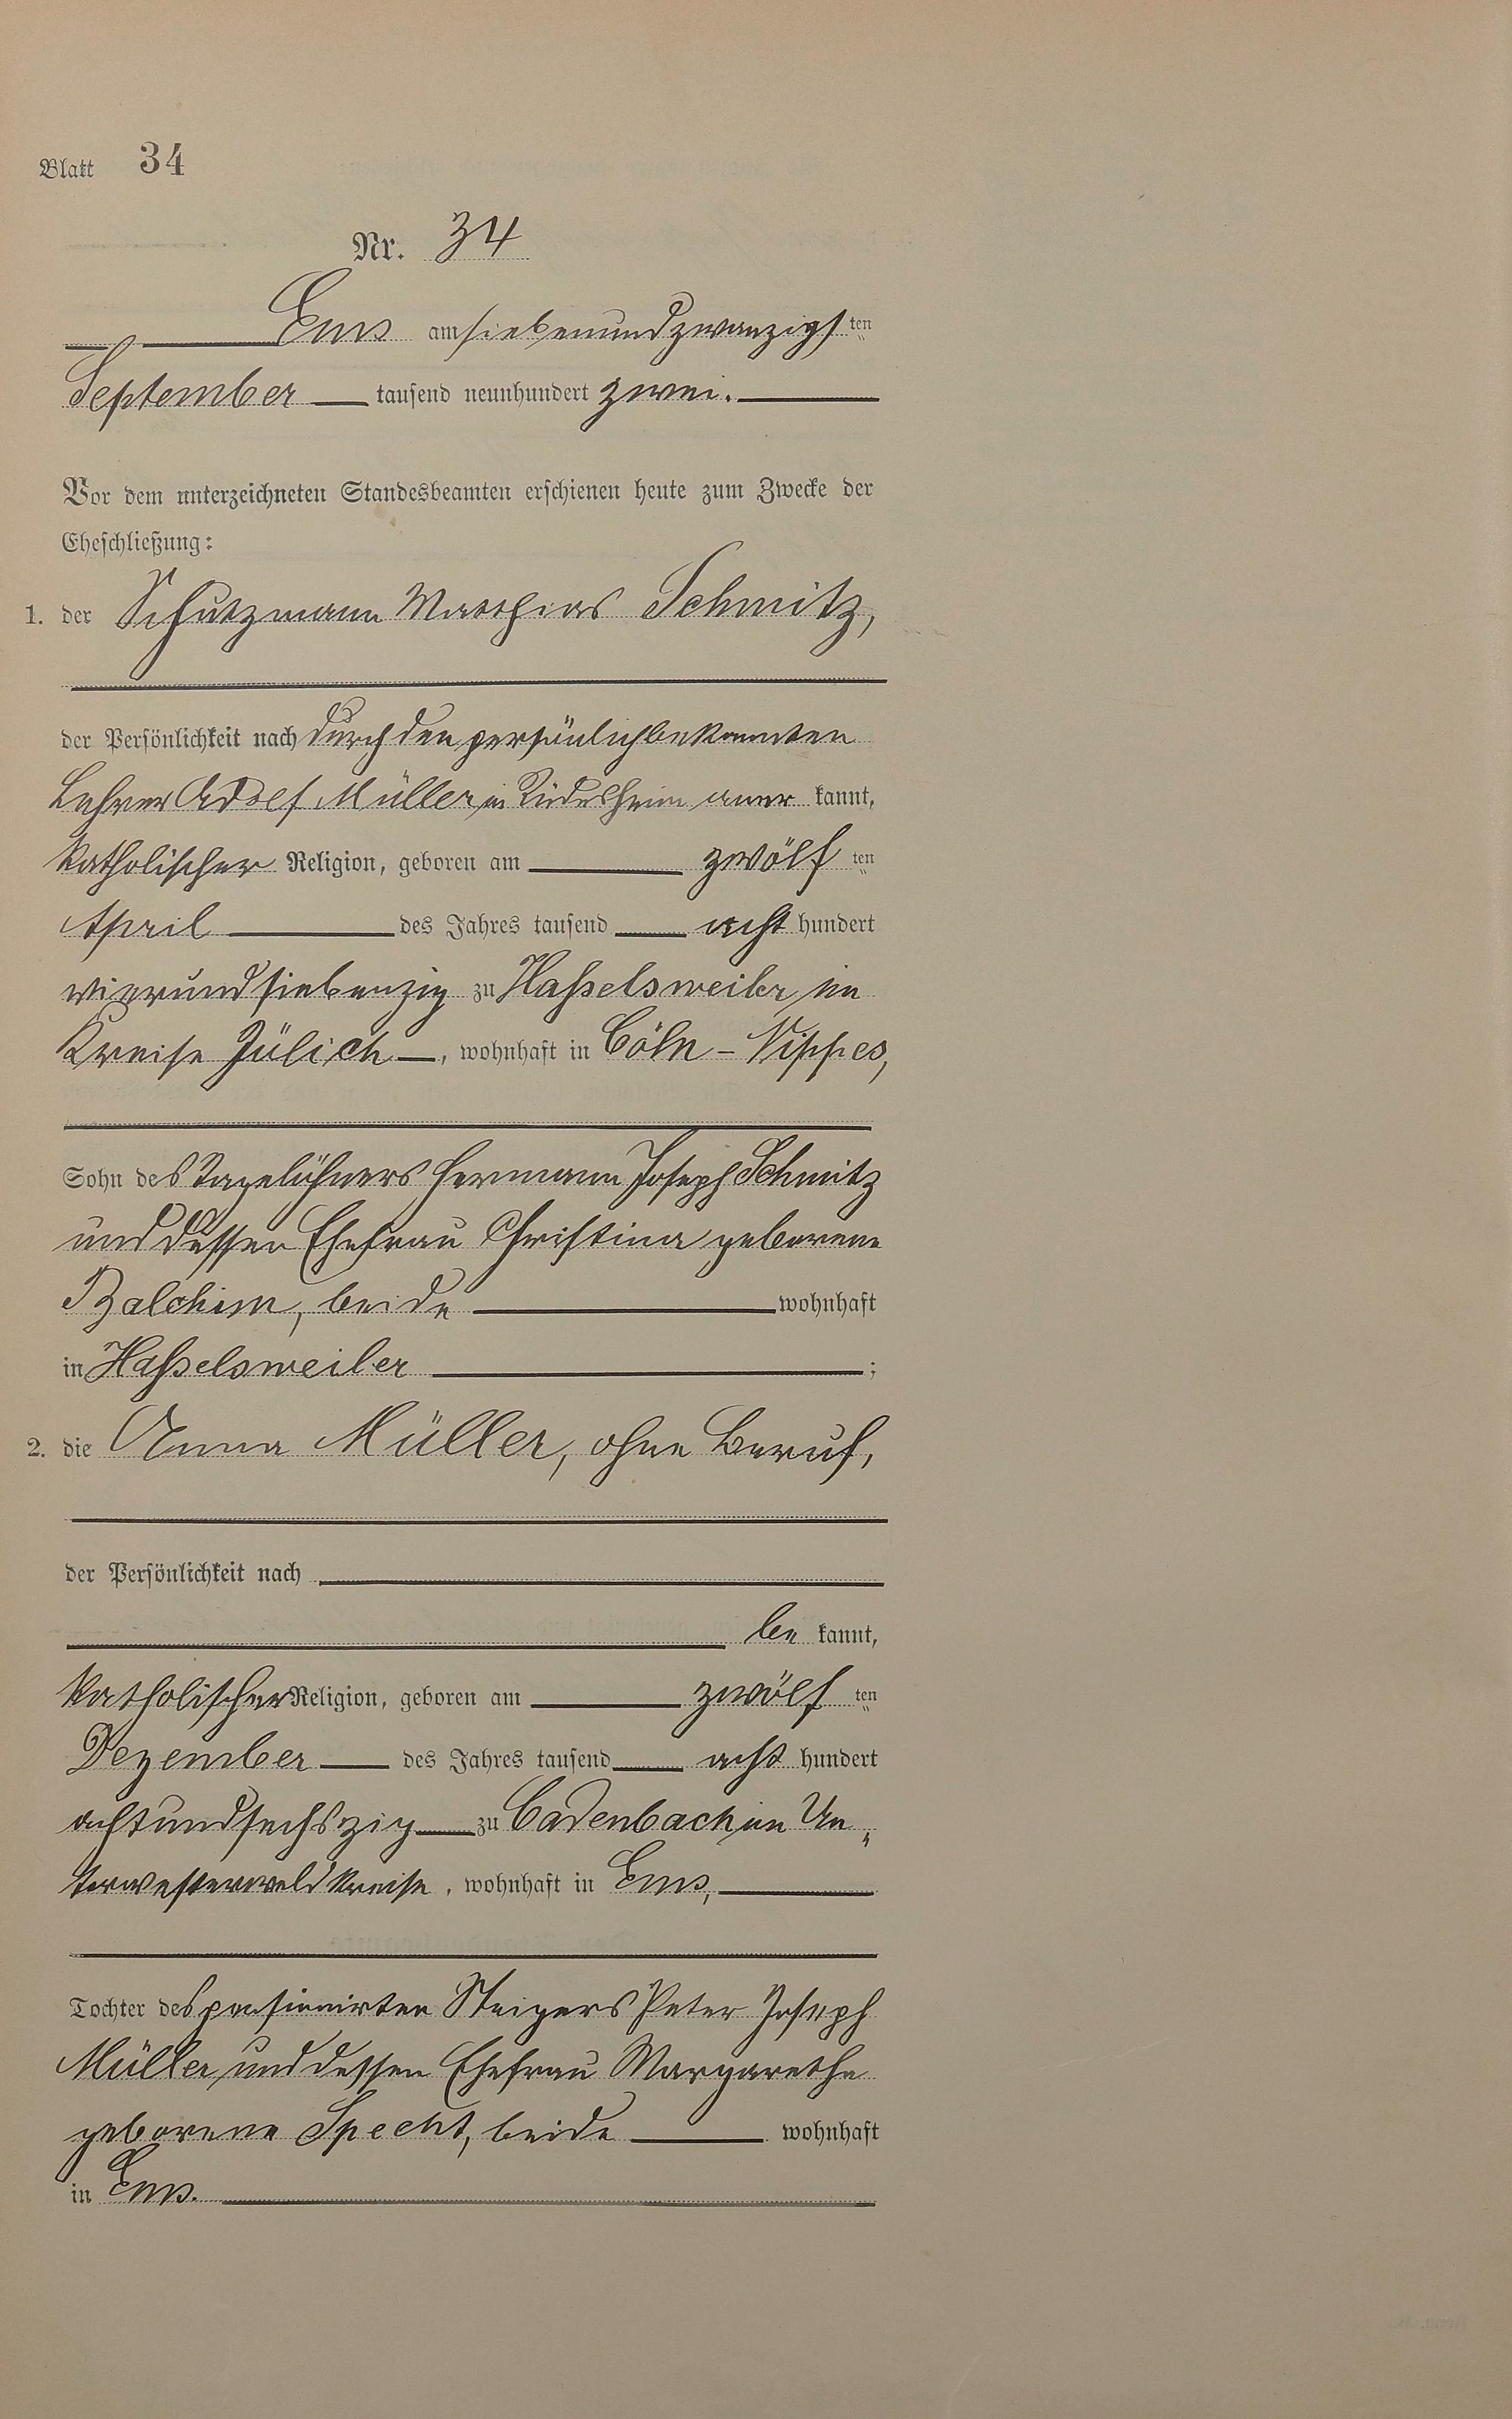 Blatt 34
Nr. 34
Ems am siebenundzwanzigsten
September tausend neunhundert zwei.
Vor dem unterzeichneten Standesbeamten erschienen heute zum Zwecke der
Eheschließung:
1. der Schutzmann Matthias Schmitz,
der Persönlichkeit nach durch den persönlich bekannten
Lehrer Adolf Müller in Rüdesheim aner kannt,
katholischer Religion, geboren am zwölf ten
April des Jahres tausend acht hundert
vierundsiebenzig zu Haßelsweiler, im
Kreise Jülich, wohnhaft in Cöln-Nippes,
Sohn des Tagelöhners Hermann Joseph Schmitz
und dessen Ehefrau Christina geborene
beide wohnhaft
in Haßelsweiler ;
2. die Anna Müller, ohne Beruf,
der Persönlichkeit nach
be kannt,
katholischer Religion, geboren am zwölf ten
Dezember des Jahres tausend acht hundert
achtundsechszig zu Cadenbach im Un„
terwesterwaldkreise, wohnhaft in Ems,
Tochter des pensionirten Steigers Peter Joseph
Müller und dessen Ehefrau Margarethe
geborene Specht, beide wohnhaft
in Ems.